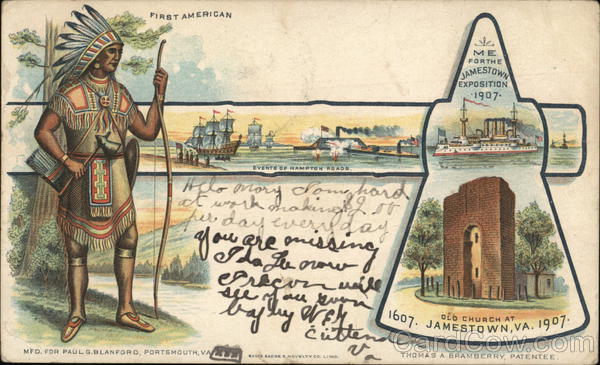 FIRST AMERICAN
ME
FOR THE
JAMESTOWN
EXPOSITION
·1907·
EVENTS OF HAMPTON ROADS.
Hello Mary I am hard
at work making $2.00
per day every day
you are missing
now
will
see you
by W.F.H
Va
OLD CHURCH AT
1607. JAMESTOWN, VA. 1907.
MFD. FOR PAUL G. BLANFORD, PORTSMOUTH, VA.
THOMAS A. BRAMBERRY, PATENTEE.
CardCow.com